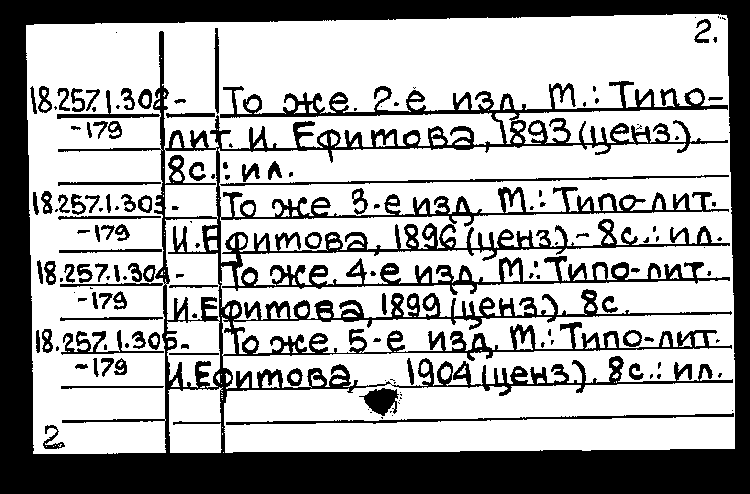 2.
18.257.1.302- То же. 2-е изд. М.: Типо-
-179 лит. И. Ефимова, 1893 (ценз.).
8с.: ил.
18.257.1.303- То же. 3-е изд. М.: Типо-лит.
-179 И.Ефимова, 1896 (ценз.).- 8с.: ил.
18.257.1.304- То же. 4-е изд. М.: Типо-лит.
-179 И.Ефимова, 1899 (ценз.). 8с.
18.257.1.305- То же. 5-е изд. М.: Типо-лит.
-179 И.Ефимова, 1904 (ценз.). 8с.: ил.
2